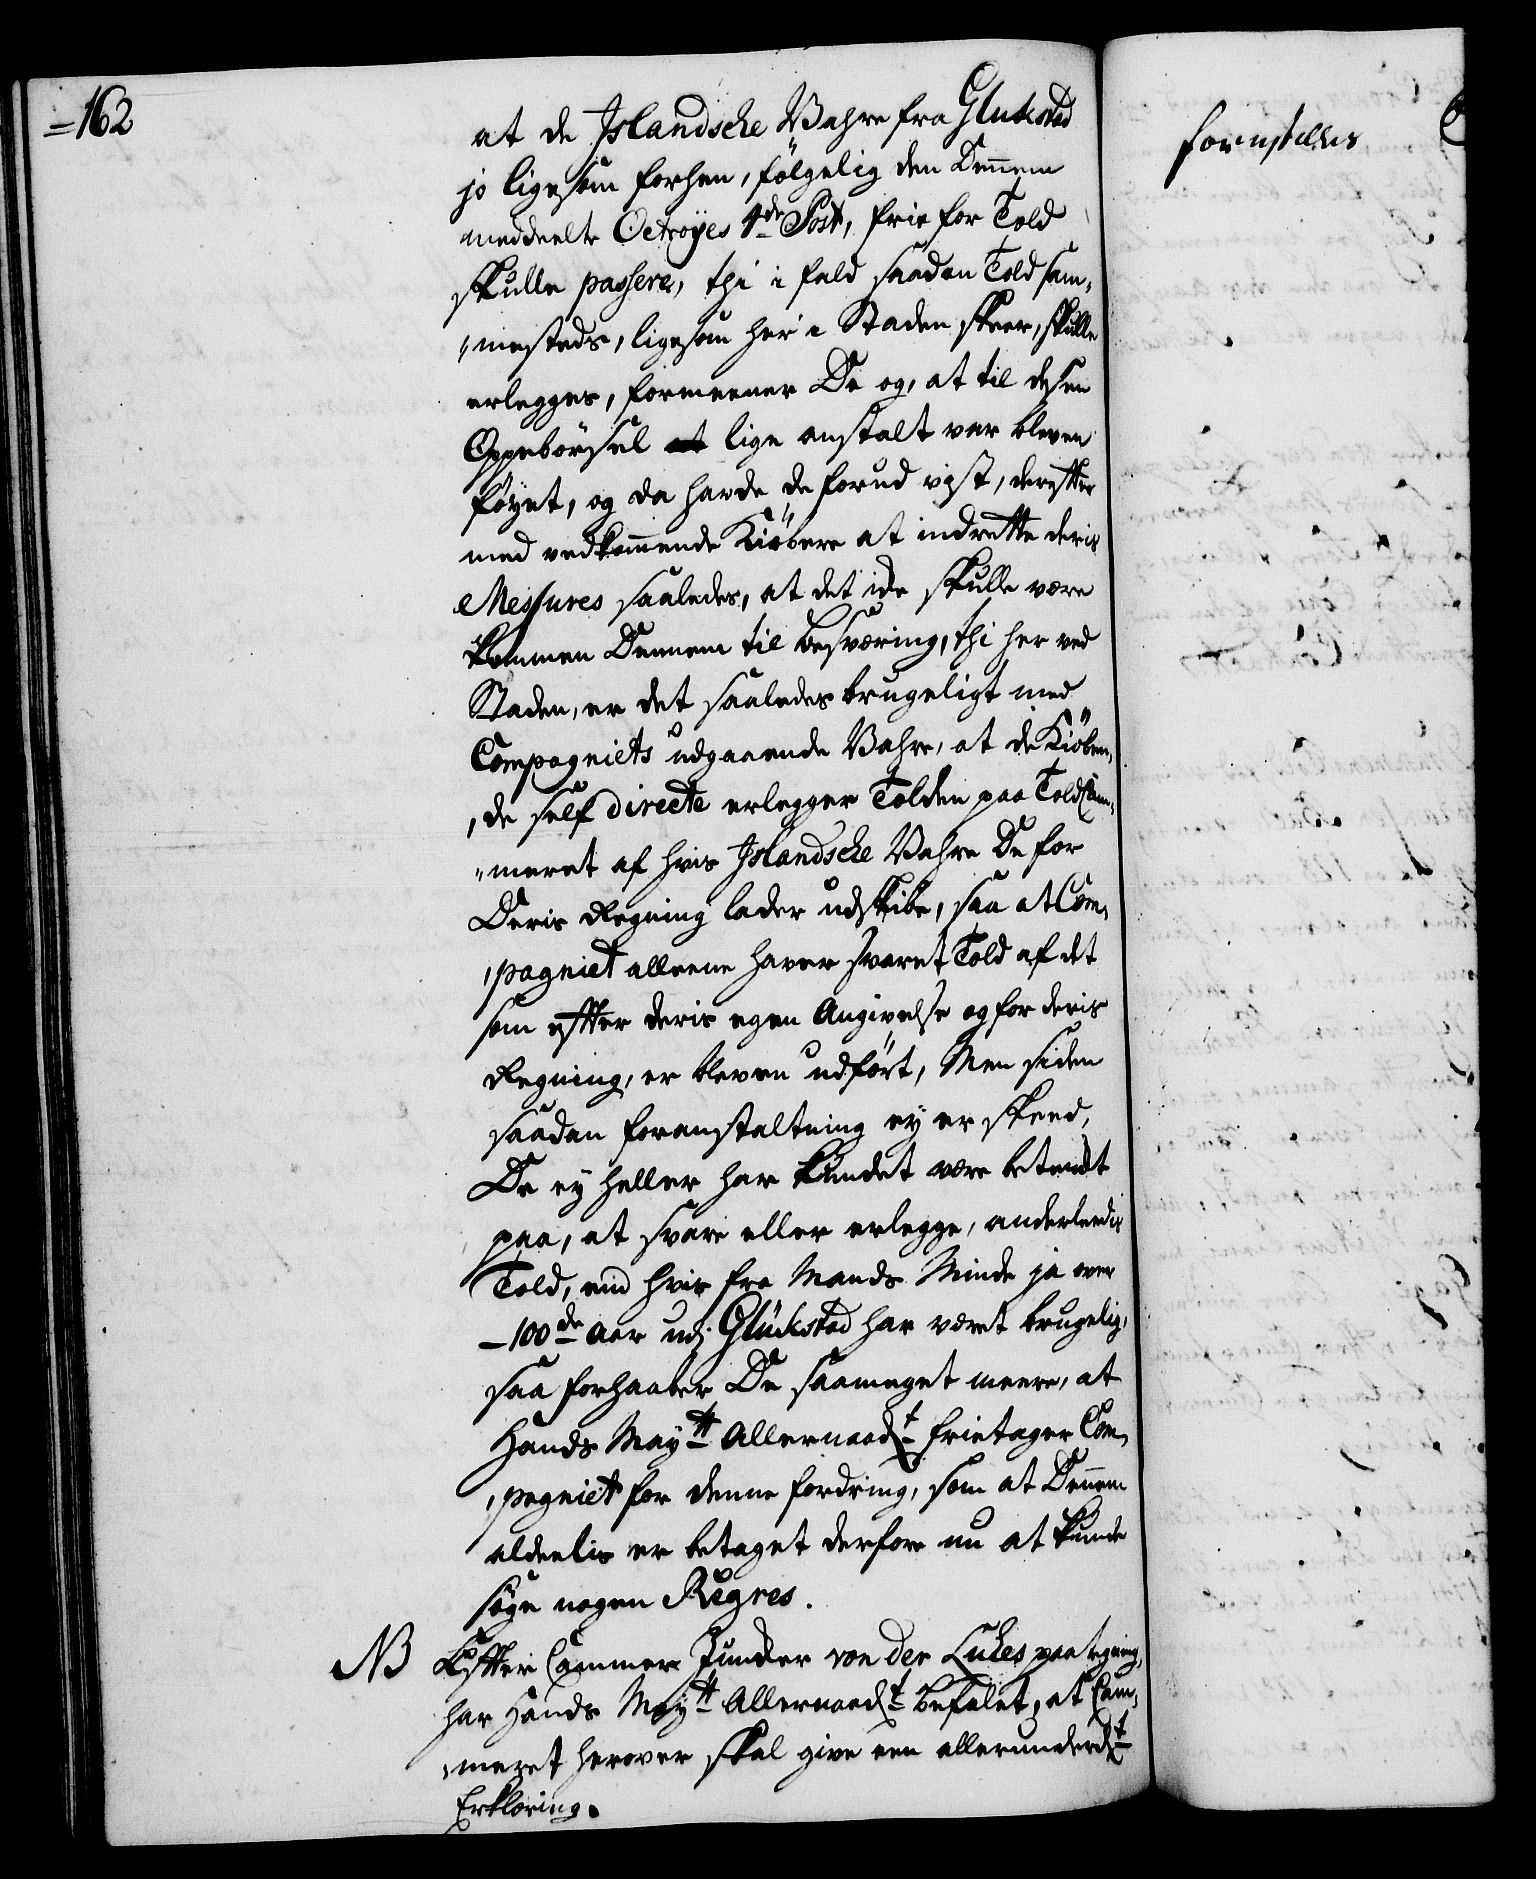 =162
at de Jslandsche Wahre fra Glukstad
jo ligesom forhen, fölgelig den Dennem
meddeelte Octroyes 4de Post, frie for Told
skulle passere, thi i fald saadan Told sam-
"mesteds, ligesom her i Staden skeer, skulle
erlegges, formeener De og, at til dessen
Oppebörsel lige anstalt var bleven
föyet, og da havde de forud vist, derefter
med vedkommende Kiöbere at indrette deris
Messures saaledes, at det icke skulle være
kommen Dennem til besværing, thi her ved
Staden, er det saaledes brugeligt med
Compagniets udgaaende Wahre, at de Kiöben-
,de self directe erlegger Tolden paa Toldkam-
"meret af hvis Jslandsche Wahre De for
Deris Regning lader udskibe, saa at Com-
,pagniet alleene haver svaret Told af det
som efter deris egen Angivelse og for deris
Regning, er bleven udfört, Men siden
saadan foranstaltning ey er skeed,
De ey heller har kundet være betænkt
paa, at svare eller erlegge, anderleedis
Told, end hvis fra Mands Minde ja over
-100de Aar udj Glückstad har været brugelig,
saa forhaaber De saameget meere, at
Hands Maytt Allernaadt frietager Com-
,pagniet for denne fordring, som at Dennem
aldeelis er betaget derfore nu at kunde
söge nogen Regres.
NB Efter Cammer Juncker von der Lühes paategning,
har Hands Maytt Allernaadt befalet, at Cam-
,meret herover skal give een allerunderdt
Erklæring.
forestilles